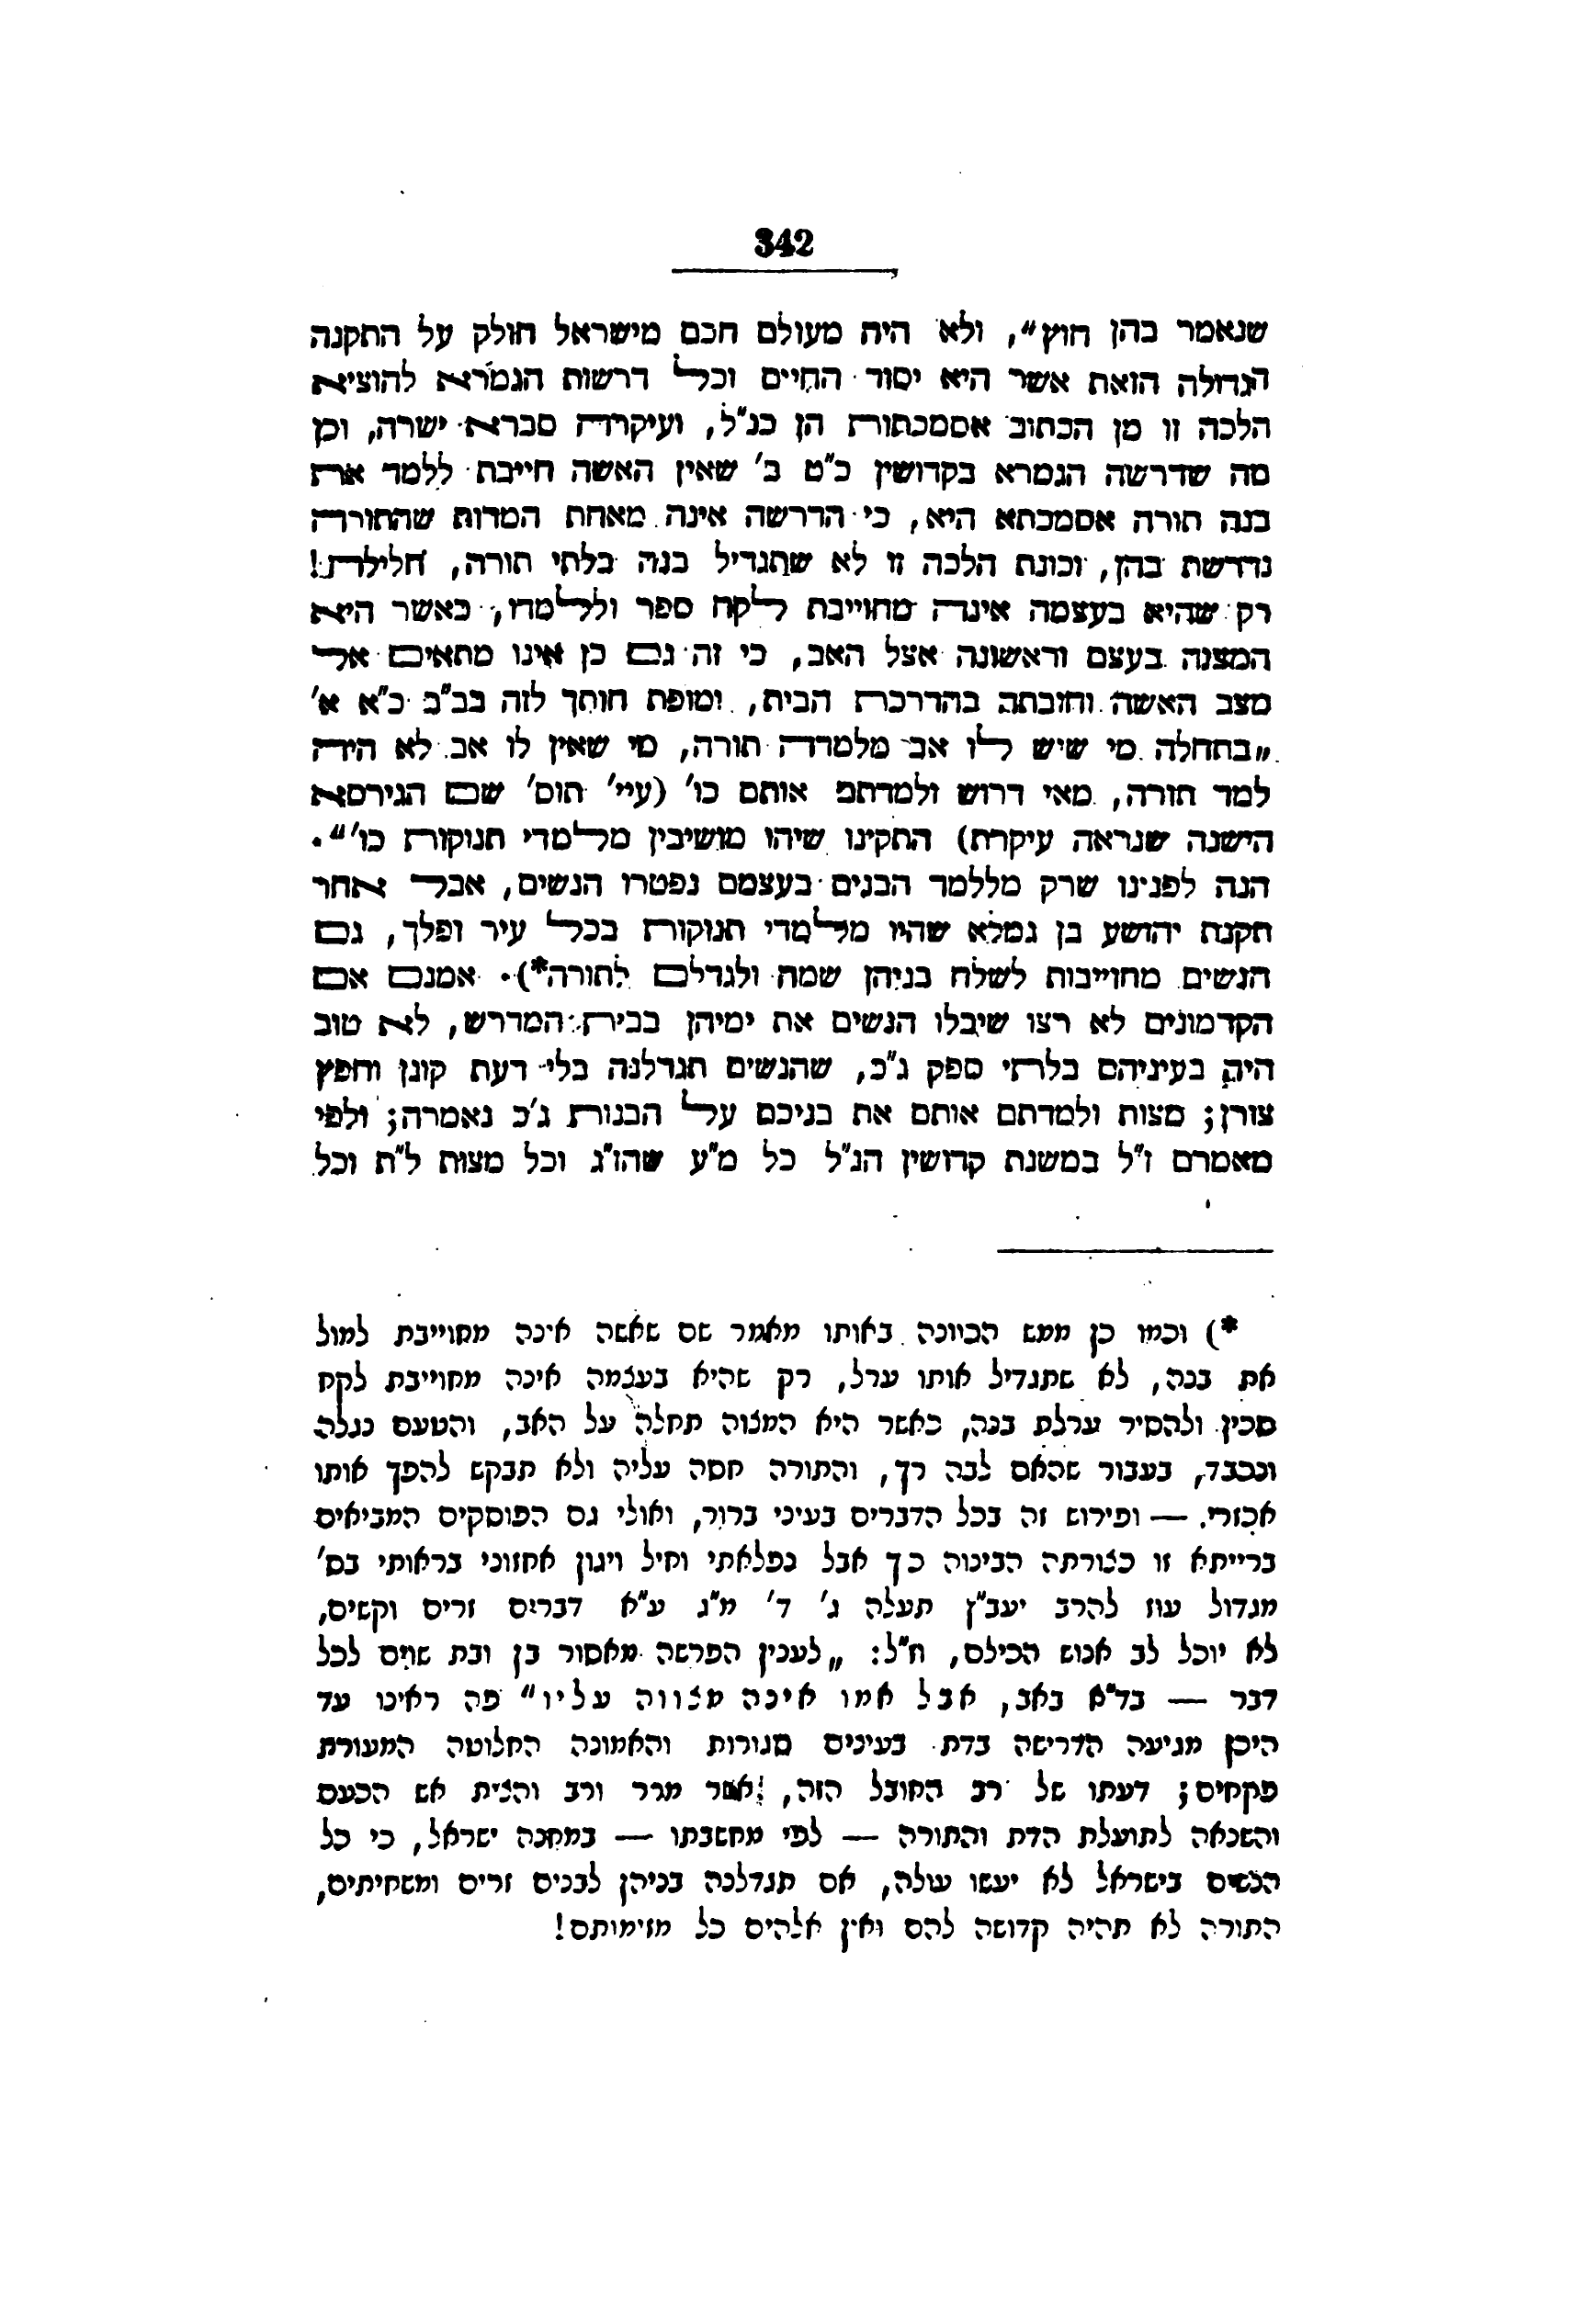 342
שנאמר בהן חוץ", ולא היה מעולם חכם מישראל חולק על התקנה
הגדולה הזאת אשר היא יסוד החיים וכל דרשות הגמרא להוציא
הלכה זו מן הכתוב אסמכתות הן כנ"ל, ועיקרה סברא ישרה, וכן
מה שדרשה הגמרא בקדושין כ"ט ב' שאין האשה חייבת ללמד את
בנה תורה אסמכתא היא, כי הדרשה אינה מאחת המדות שהתורה
נדרשת בהן, וכונת הלכה זו לא שתגדיל בנה בלתי תורה, חלילה!
רק שהיא בעצמה אינה מחוייבת לקח ספר וללמדו, כאשר היא
המצוה בעצם וראשונה אצל האב, כי זה גם כן אינו מתאים אל
מצב האשה וחובתה בהדרכת הבית, ומופת חותך לזה בב"ב כ"א א'
„בתחלה מי שיש לו אב מלמדה תורה, מי שאין לו אב לא היה
למד תורה, מאי דרוש ולמדתם אותם כו' (עיי' תוס' שם הגירסא
הישנה שנראה עיקרת) התקינו שיהו מושיבין מלמדי תנוקות כו'".
הנה לפנינו שרק מללמד הבנים בעצמם נפטרו הנשים, אבל אחר
תקנת יהושע בן גמלא שהיו מלמדי תנוקות בכל עיר ופלך, גם
הנשים מחוייבות לשלח בניהן שמה ולגדלם לתורה*). אמנם אם
הקדמונים לא רצו שיבלו הנשים את ימיהן בבית המדרש, לא טוב
היה בעיניהם בלתי ספק ג"כ, שהנשים תגדלנה בלי דעת קונן וחפץ
צורן; מצות ולמדתם אותם את בניכם על הבנות ג'כ נאמרה; ולפי
מאמרם ז"ל במשנת קדושין הנ"ל כל מ"ע שהז"ג וכל מצות ל"ת וכל
*) וכמו כן ממש הכוונה באותו מאמר שם שאשה אינה מחוייבת למול
את בנה, לא שתגדיל אותו ערל, רק שהיא בעצמה אינה מחוייבת לקח
סכין ולהסיר ערלת בנה, כאשר היא המצוה תחלה על האב, והטעם נגלה
ונכבד, בעבור שהאם לבה רך, והתורה חסה עליה ולא תבקש להפך אותו
אכזרי. — ופירוש זה בכל הדברים בעיני ברור, ואולי גם הפוסקים המביאים
ברייתא זו כצורתה הבינוה כך אבל נפלאתי וחיל ויגון אחזוני בראותי בס'
מגדול עוז להרב יעב"ץ תעלה ג' ד' מ"ג ע"א דברים זרים וקשים,
לא יוכל לב אנוש הכילם, וז"ל: „לענין הפרשה מאסור בן ובת שוים לכל
דבר — בד"א באב, אבל אמו אינה מצווה עליו" פה ראינו עד
היכן מגיעה הדרישה בדת בעינים סגורות והאמונה החלוטה המעורת
פקחים; דעתו של רב החובל הזה, אשר מרר ורב והצית אש הכעס
והשנאה לתועלת הדת והתורה — לפי מחשבתו — במחנה ישראל, כי כל
הנשים בישראל לא יעשו עולה, אם תגדלנה בניהן לבנים זרים ומשחיתים,
התורה לא תהיה קדושה להם ואין אלהים כל מזימותם!